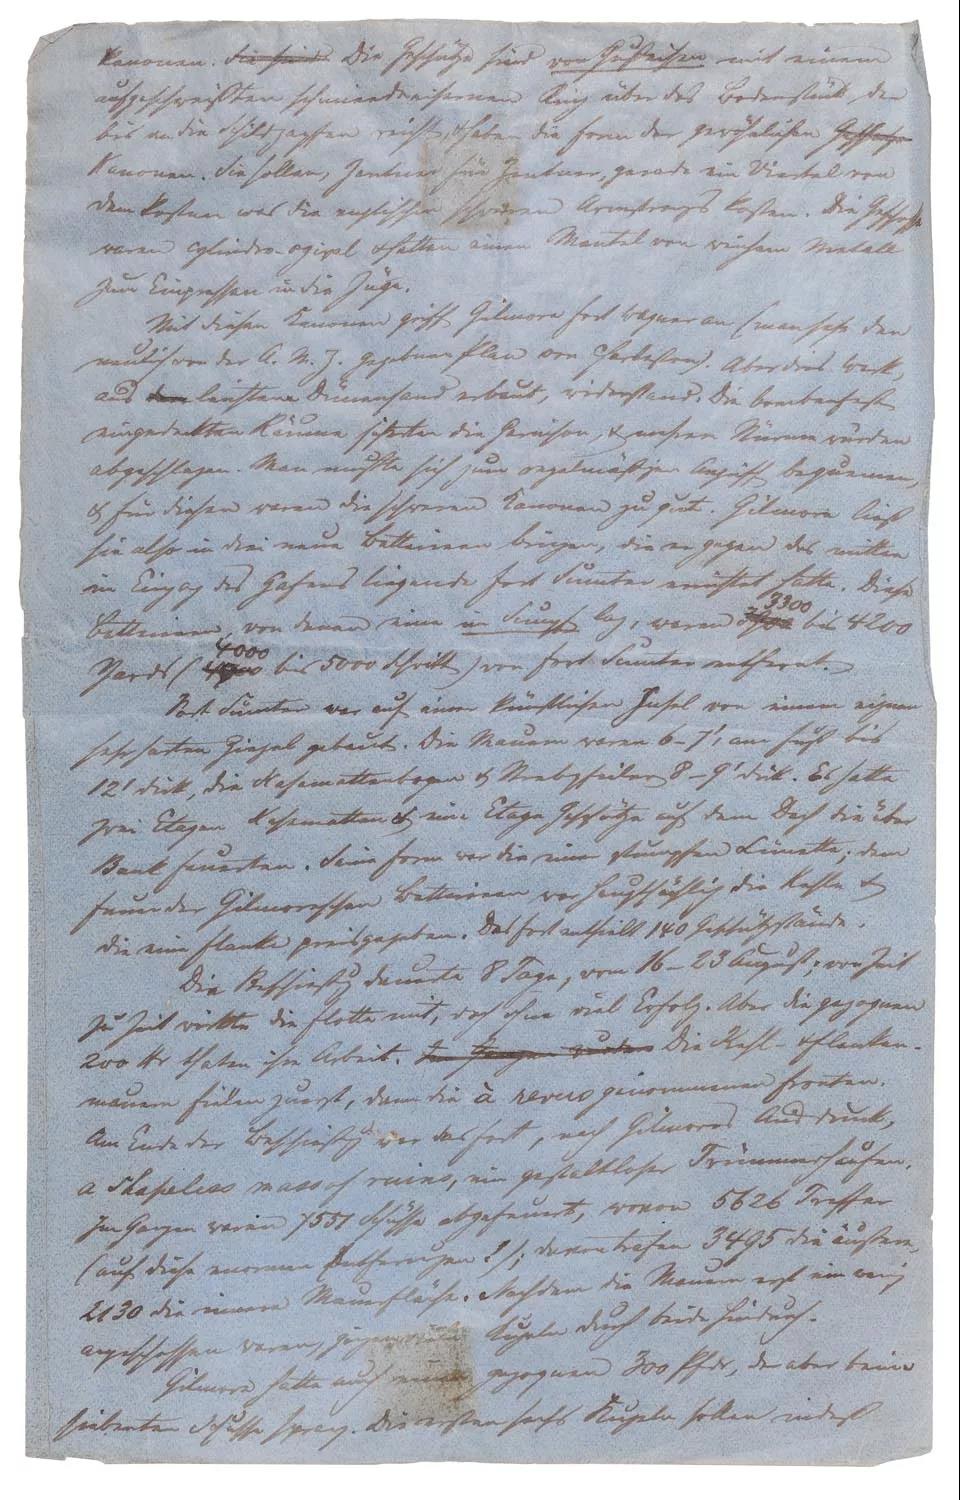 Kanonen. Sie sind Die Geschütze sind von Gußeisen mit einem
aufgeschweißten schmiedeeisernen Ring über das Bodenstück, der
bis an die Schildzapfen reicht, & haben die Form der gewöhnlichen
Kanonen. Sie sollen, Zentner für Zentner, gerade ein Viertel von
dem kosten was die englischen schweren Armstrongs kosten. Die Geschosse
waren cylindro-ogival & hatten einen Mantel von weichem Metall
zum Einpressen in die Züge.
Mit diesen Kanonen griff Gilmore Fort Wagner an (man sehe den
neulich von der A. M. Z. gegebenen Plan von Charleston). Aber dies Werk,
aus dem leichten Dünensand erbaut, widerstand. Die bombenfest
eingedeckten Räume schützten die Garnison, & mehrere Stürme wurden
abgeschlagen. Man mußte sich zum regelmäßigen Angriff bequemen,
& für diesen waren die schweren Kanonen zu gut. Gilmore ließ
sie also in drei neue Batterieen bringen, die er gegen das mitten
im Eingang des Hafens liegende Fort Sumter errichtet hatte. Diese
Batterieen, von denen eine im Sumpf lag, waren 3300 bis 4200
Yards (4000 bis 5000 Schritt) von Fort Sumter entfernt.
Fort Sumter war auf einer künstlichen Insel von einem eignen
sehr harten Ziegel gebaut. Die Mauern waren 6–7', am Fuß bis
12' dick, die Kasemattenbogen & Strebepfeiler 8–9' dick. Es hatte
zwei Etagen Kasematten & eine Etage Geschütze auf dem Dach die über
Bank feuerten. Seine Form war die einer stumpfen Lünette; dem
Feuer der Gilmoreschen Batterieen war hauptsächlich die Kehle &
die eine Flanke preisgegeben. Das Fort enthielt 140 Geschützstände.
Die Beschießung dauerte 8 Tage, vom 16–23 August; von Zeit
zu Zeit wirkte die Flotte mit, doch ohne viel Erfolg. Aber die gezogenen
200 tr thaten ihre Arbeit. Im Ganzen wurden Die Kehl- & Flanken-
mauern fielen zuerst, dann die à revers genommenen Fronten.
Am Ende der Beschießung war das Fort, nach Gilmores Ausdruck,
a shapeless mass of ruins, ein gestaltloser Trümmerhaufen.
Im Ganzen waren 7551 Schüsse abgefeuert, wovon 5626 Treffer
(auf diese enormen Entfernungen!); davon trafen 3495 die äußere,
2130 die innere Mauerfläche. Nachdem die Mauern erst ein wenig
angeschossen waren, gingen viele Kugeln durch beide hindurch.
Gilmore hatte auch einen gezogenen 300 Pfdr, der aber beim
siebenten Schusse sprang. Die ersten sechs Kugeln sollen indeß